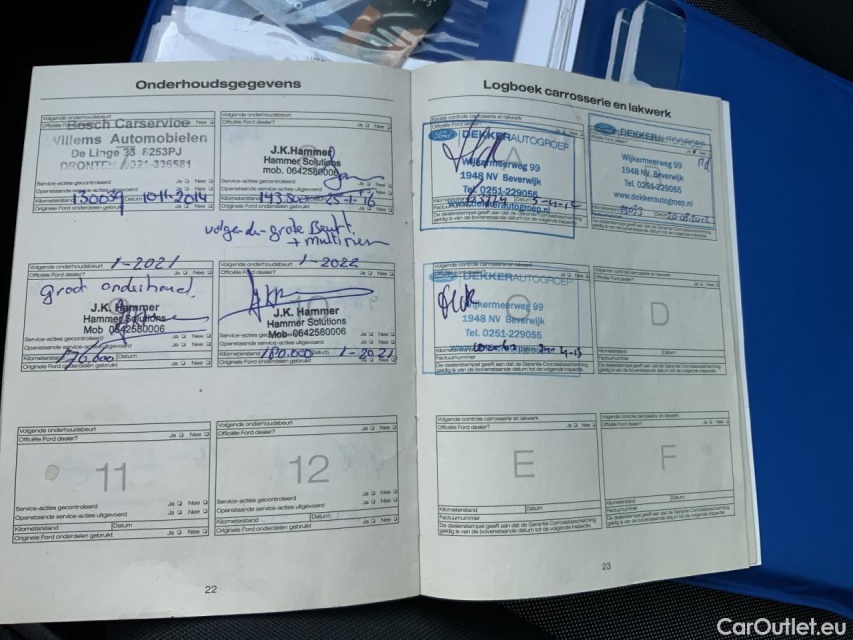 Onderhoudsgegevens
Volgende onderhoudsbeurt
Officiële Ford dealer? Ja Nee
Bosch Carservice
Willems Automobielen
De Linge 35 8253PJ
DRONTEN 0321-336581
Service-acties gecontroleerd Ja Nee
Openstaande service-acties uitgevoerd Ja Nee
Kilometerstand 130039 Datum 10-11-2014
Originele Ford onderdelen gebruikt Ja Nee
Volgende onderhoudsbeurt
Officiële Ford dealer? Ja Nee
J.K.Hammer
Hammer Solutions
mob. 0642580006
Service-acties gecontroleerd Ja Nee
Openstaande service-acties uitgevoerd Ja Nee
Kilometerstand Datum 25-1-16
Originele Ford onderdelen gebruikt Ja Nee
volgende grote Beurt
+ multiriem
Volgende onderhoudsbeurt 1-2021
Officiële Ford dealer? Ja Nee
Groot onderhoud
J.K. Hammer
Hammer Solutions
Mob 0642580006
Service-acties
Openstaande service-acties uitgevoerd Ja Nee
Kilometerstand 176.000 Datum
Originele Ford onderdelen gebruikt Ja Nee
Volgende onderhoudsbeurt 1-2022
Officiële Ford dealer? Ja Nee
10
J.K. Hammer
Hammer Solutions
Mob 0642580006
Service-acties
Openstaande service-acties uitgevoerd Ja Nee
Kilometerstand 180.000 Datum 1-2021
Originele Ford onderdelen gebruikt Ja Nee
Volgende onderhoudsbeurt
Officiële Ford dealer? Ja Nee
11
Service-acties gecontroleerd Ja Nee
Openstaande service-acties uitgevoerd Ja Nee
Kilometerstand Datum
Originele Ford onderdelen gebruikt Ja Nee
Volgende onderhoudsbeurt
Officiële Ford dealer? Ja Nee
12
Service-acties gecontroleerd Ja Nee
Openstaande service-acties uitgevoerd Ja Nee
Kilometerstand Datum
Originele Ford onderdelen gebruikt Ja Nee
22
Logboek carrosserie en lakwerk
Eerste controle carrosserie en lakwerk
Ford DEKKERAUTOGROEP
A
Wijkermeerweg 99
1948 NV Beverwijk
Tel. 0251-229055
www.dekkerautogroep.nl
De dealerstempel geeft aan dat de Garantie Carrosseriebescherming
geldig is van de bovenstaande datum tot de volgende inspectie.
Ford DEKKERAUTOGROEP
Officiële Ford dealer?
Wijkermeerweg 99
1948 NV Beverwijk
Tel. 0251-229055
www.dekkerautogroep.nl
De dealerstempel geeft aan dat de Garantie Carrosseriebescherming
geldig is van de bovenstaande datum tot de volgende inspectie.
Volgende controle carrosserie en lakwerk
DEKKERAUTOGROEP
C
Wijkermeerweg 99
1948 NV Beverwijk
Tel. 0251-229055
Factuurnummer
De dealerstempel geeft aan dat de Garantie Carrosseriebescherming
geldig is van de bovenstaande datum tot de volgende inspectie.
Volgende controle carrosserie en lakwerk
Officiële Ford dealer? Ja Nee
D
Kilometerstand Datum
Factuurnummer
De dealerstempel geeft aan dat de Garantie Carrosseriebescherming
geldig is van de bovenstaande datum tot de volgende inspectie.
Volgende controle carrosserie en lakwerk
Officiële Ford dealer? Ja Nee
E
Kilometerstand Datum
Factuurnummer
De dealerstempel geeft aan dat de Garantie Carrosseriebescherming
geldig is van de bovenstaande datum tot de volgende inspectie.
Volgende controle carrosserie en lakwerk
Officiële Ford dealer? Ja Nee
F
Kilometerstand Datum
Factuurnummer
De dealerstempel geeft aan dat de Garantie Carrosseriebescherming
geldig is van de bovenstaande datum tot de volgende inspectie.
23
CarOutlet.eu